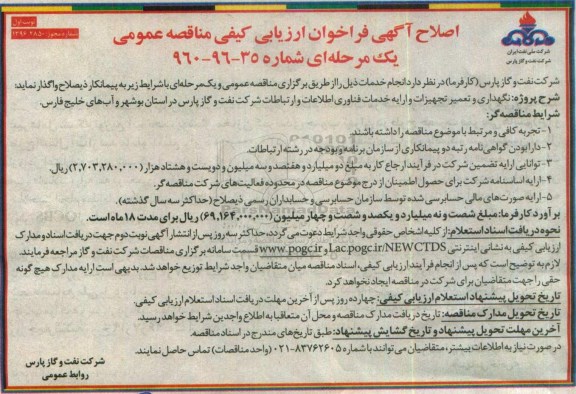 نوبت اول
شماره مجوز: ۱۳۹۶.۴۸۵۰
شرکت ملی نفت ایران
شرکت نفت و گاز پارس
اصلاح آگهی فراخوان ارزیابی کیفی مناقصه عمومی
یک مرحله‌ای شماره ۳۵-۹۶-۹۶۰
شرکت نفت و گاز پارس (کارفرما) در نظر دارد انجام خدمات ذیل را از طریق برگزاری مناقصه عمومی و یک مرحله‌ای با شرایط زیر به پیمانکار ذیصلاح واگذار نماید:
شرح پروژه: نگهداری و تعمیر تجهیزات و ارایه خدمات فناوری اطلاعات و ارتباطات شرکت نفت و گاز پارس در استان بوشهر و آب‌های خلیج فارس.
شرایط مناقصه‌گر:
۱-تجربه کافی و مرتبط با موضوع مناقصه را داشته باشند.
۲-دارا بودن گواهی‌نامه رتبه دو پیمانکاری از سازمان برنامه و بودجه در رشته ارتباطات.
۳-توانایی ارایه تضمین شرکت در فرآیند ارجاع کار به مبلغ دو میلیارد و هفتصد و سه میلیون و دویست و هشتاد هزار (۲,۷۰۳,۲۸۰,۰۰۰) ریال.
۴-ارایه اساسنامه شرکت برای حصول اطمینان از درج موضوع مناقصه در محدوده فعالیت‌های شرکت مناقصه‌گر.
۵-ارایه صورت‌های مالی حسابرسی شده توسط سازمان حسابرسی و حسابداران رسمی ذیصلاح (حداکثر سه سال گذشته).
برآورد کار فرما: مبلغ شصت و نه میلیارد و یکصد و شصت و چهار میلیون (۶۹,۱۶۴,۰۰۰,۰۰۰) ریال برای مدت ۱۸ ماه است.
نحوه دریافت اسناد استعلام: از کلیه اشخاص حقوقی واجد شرایط دعوت می‌گردد، حداکثر سه روز پس از انتشار آگهی نوبت دوم جهت دریافت اسناد و مدارک
ارزیابی کیفی به نشانی اینترنتی Lac.pogc.ir/NEWCTDS و www.pogc.ir قسمت سامانه برگزاری مناقصات شرکت نفت و گاز مراجعه فرمایند.
لازم به توضیح است که پس از انجام فرآیند ارزیابی کیفی، اسناد مناقصه میان متقاضیان واجد شرایط توزیع خواهد شد. بدیهی است ارایه مدارک هیچ گونه
حقی را جهت متقاضیان برای شرکت در مناقصه ایجاد نخواهد کرد.
تاریخ تحویل پیشنهاد استعلام ارزیابی کیفی: چهارده روز پس از آخرین مهلت دریافت اسناد استعلام ارزیابی کیفی.
تاریخ تحویل مدارک مناقصه: تاریخ دریافت مدارک مناقصه و محل آن متعاقبا به اطلاع واجدین شرایط خواهد رسید.
آخرین مهلت تحویل پیشنهاد و تاریخ گشایش پیشنهاد: طبق تاریخ‌های مندرج در اسناد مناقصه.
در صورت نیاز به اطلاعات بیشتر، متقاضیان می‌توانند با شماره ۸۳۷۶۲۶۰۵-۰۲۱ (واحد مناقصات) تماس حاصل نمایند.
شرکت نفت و گاز پارس
روابط عمومی